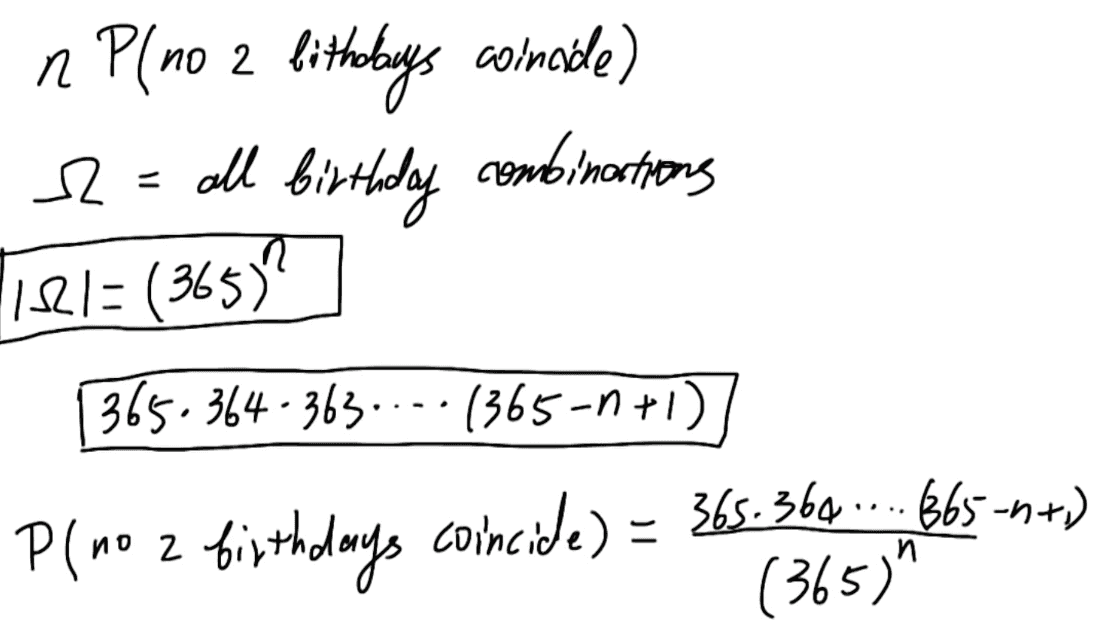 n P(no 2 bithdays coincide)
Ω = all birthday combinations
|Ω| = (365)^n
365 · 364 · 363 · · · · (365 - n + 1)
P(no 2 birthdays coincide) = \frac{365 · 364 · · · · (365 - n + 1)}{(365)^n}